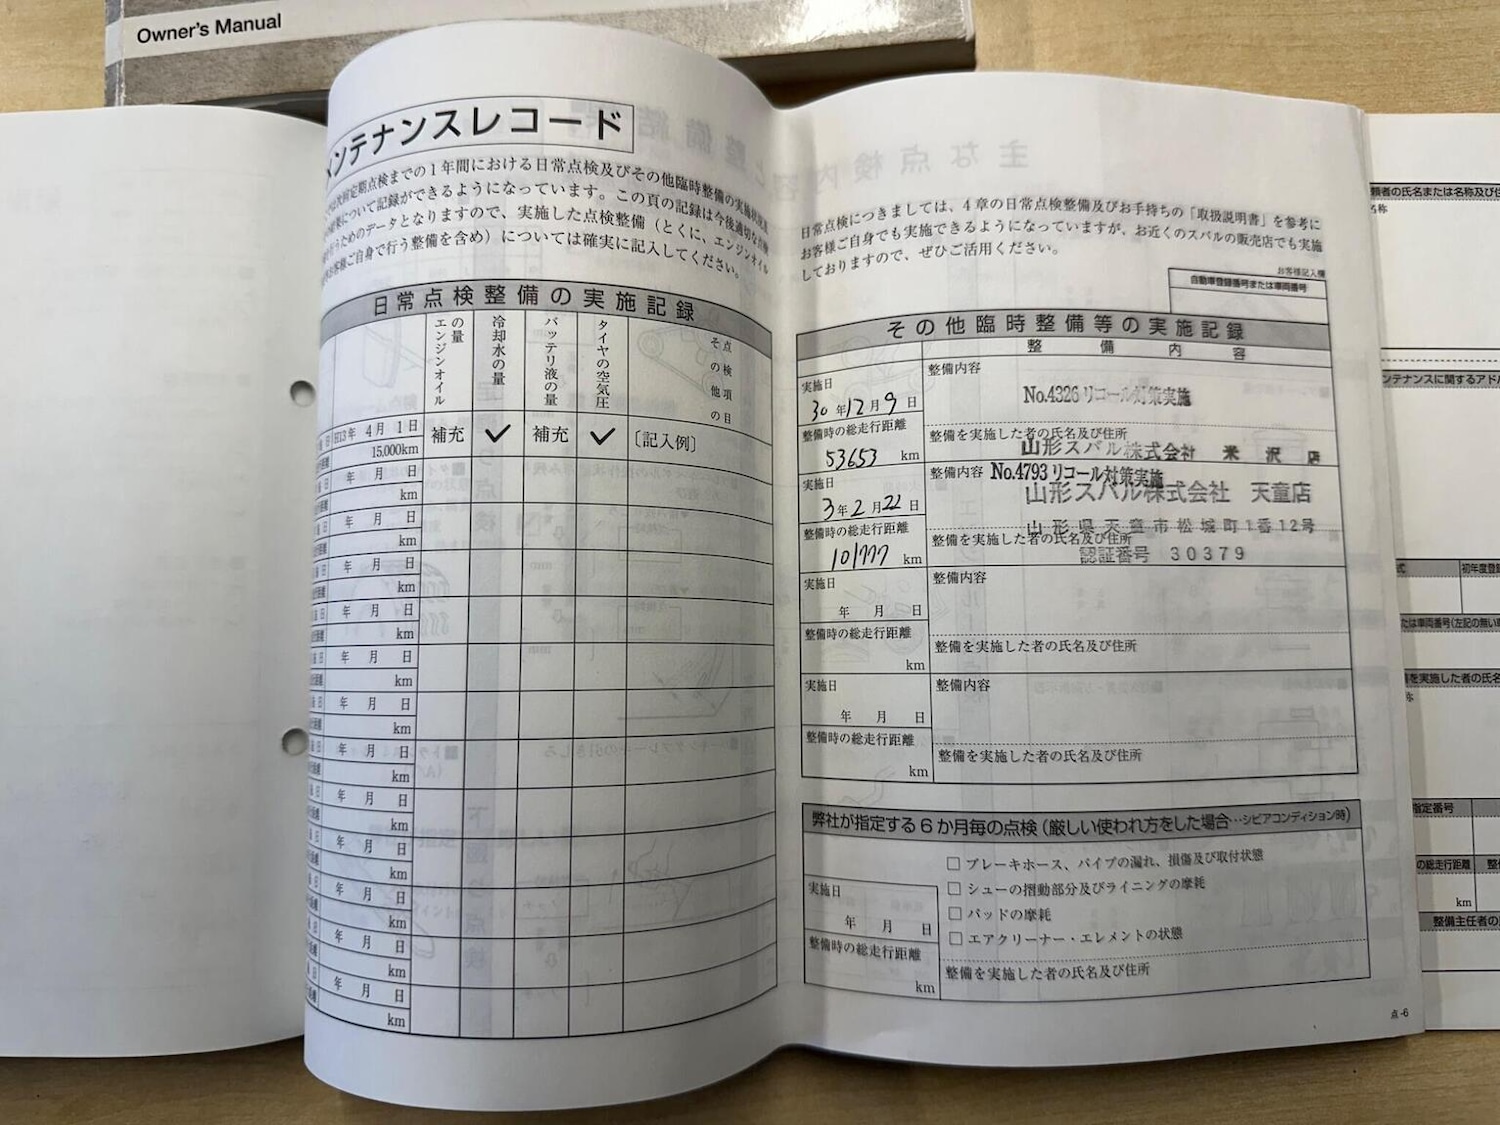 Owner's Manual
メンテナンスレコード
次回定期点検までの1年間における日常点検及びその他臨時整備の実施状況
について記録ができるようになっています。この頁の記録は今後適切な点検
うためのデータとなりますので、実施した点検整備（とくに、エンジンオイル
お客様ご自身で行う整備を含め）については確実に記入してください。
日常点検整備の実施記録
エンジンオイルの量
冷却水の量
バッテリ液の量
タイヤの空気圧
その他の点検項目
H13年 4月 1日
15,000km
補充
✓
補充
✓
〔記入例〕
年 月 日
km
年 月 日
km
年 月 日
km
年 月 日
km
年 月 日
km
年 月 日
km
年 月 日
km
年 月 日
km
年 月 日
km
年 月 日
km
年 月 日
km
年 月 日
km
日常点検につきましては、4章の日常点検整備及びお手持ちの「取扱説明書」を参考に
お客様ご自身でも実施できるようになっていますが、お近くのスバルの販売店でも実施
しておりますので、ぜひご活用ください。
お客様記入欄
自動車登録番号または車両番号
その他臨時整備等の実施記録
整備内容
実施日
30年12月9日
整備時の総走行距離
53653 km
整備内容
No.4326 リコール対策実施
整備を実施した者の氏名及び住所
山形スバル株式会社 米沢店
実施日
3年2月22日
整備時の総走行距離
101777 km
整備内容
No.4793 リコール対策実施
山形スバル株式会社 天童店
山形県天童市松城町1番12号
整備を実施した者の氏名及び住所
認証番号 30379
実施日
年 月 日
整備時の総走行距離
km
整備内容
整備を実施した者の氏名及び住所
実施日
年 月 日
整備時の総走行距離
km
整備内容
整備を実施した者の氏名及び住所
弊社が指定する6か月毎の点検（厳しい使われ方をした場合…シビアコンディション時）
□ ブレーキホース、パイプの漏れ、損傷及び取付状態
□ シューの摺動部分及びライニングの摩耗
□ パッドの摩耗
□ エアクリーナー・エレメントの状態
実施日
年 月 日
整備時の総走行距離
km
整備を実施した者の氏名及び住所
点-6
頼者の氏名または名称及び住
名称
ンテナンスに関するアドバ
式
初年度登録
または車両番号(左記の無い
備を実施した者の氏名
称
指定番号
の総走行距離
km
整備主任者の